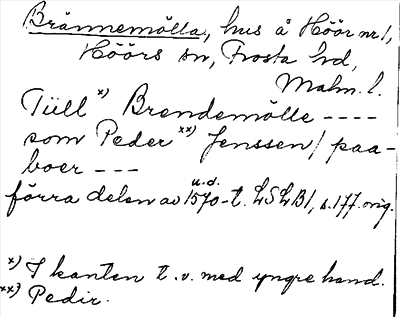 Brännemölla, hus å Höör nr 1,
Höörs sn, Frosta hd,
Malm. l.
Tüll x) Brendemölle ----
som Peder xx) Jenssen / paa-
boer ---
u. d.
förra delen av 1570-t. LSLB1, s. 177. orig.
x) I kanten t. v. med yngre hand.
xx) Pedir.